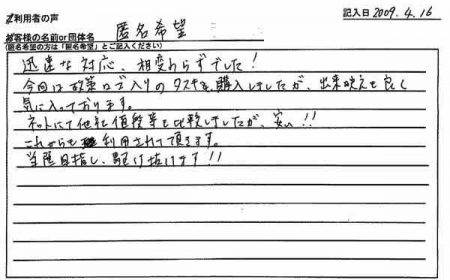 ご利用者の声
記入日 2009.4.16
お客様の名前or団体名 匿名希望
(匿名希望の方は「匿名希望」とご記入ください)
迅速な対応、相変わらずでした!
今回は政策ロゴ入りのタスキを購入しましたが、出来映えも良く
気に入っております。
ネットにて他社値段等も比較しましたが、安い!!
これからも利用させて頂きます。
当選目指し、駆け抜けます!!